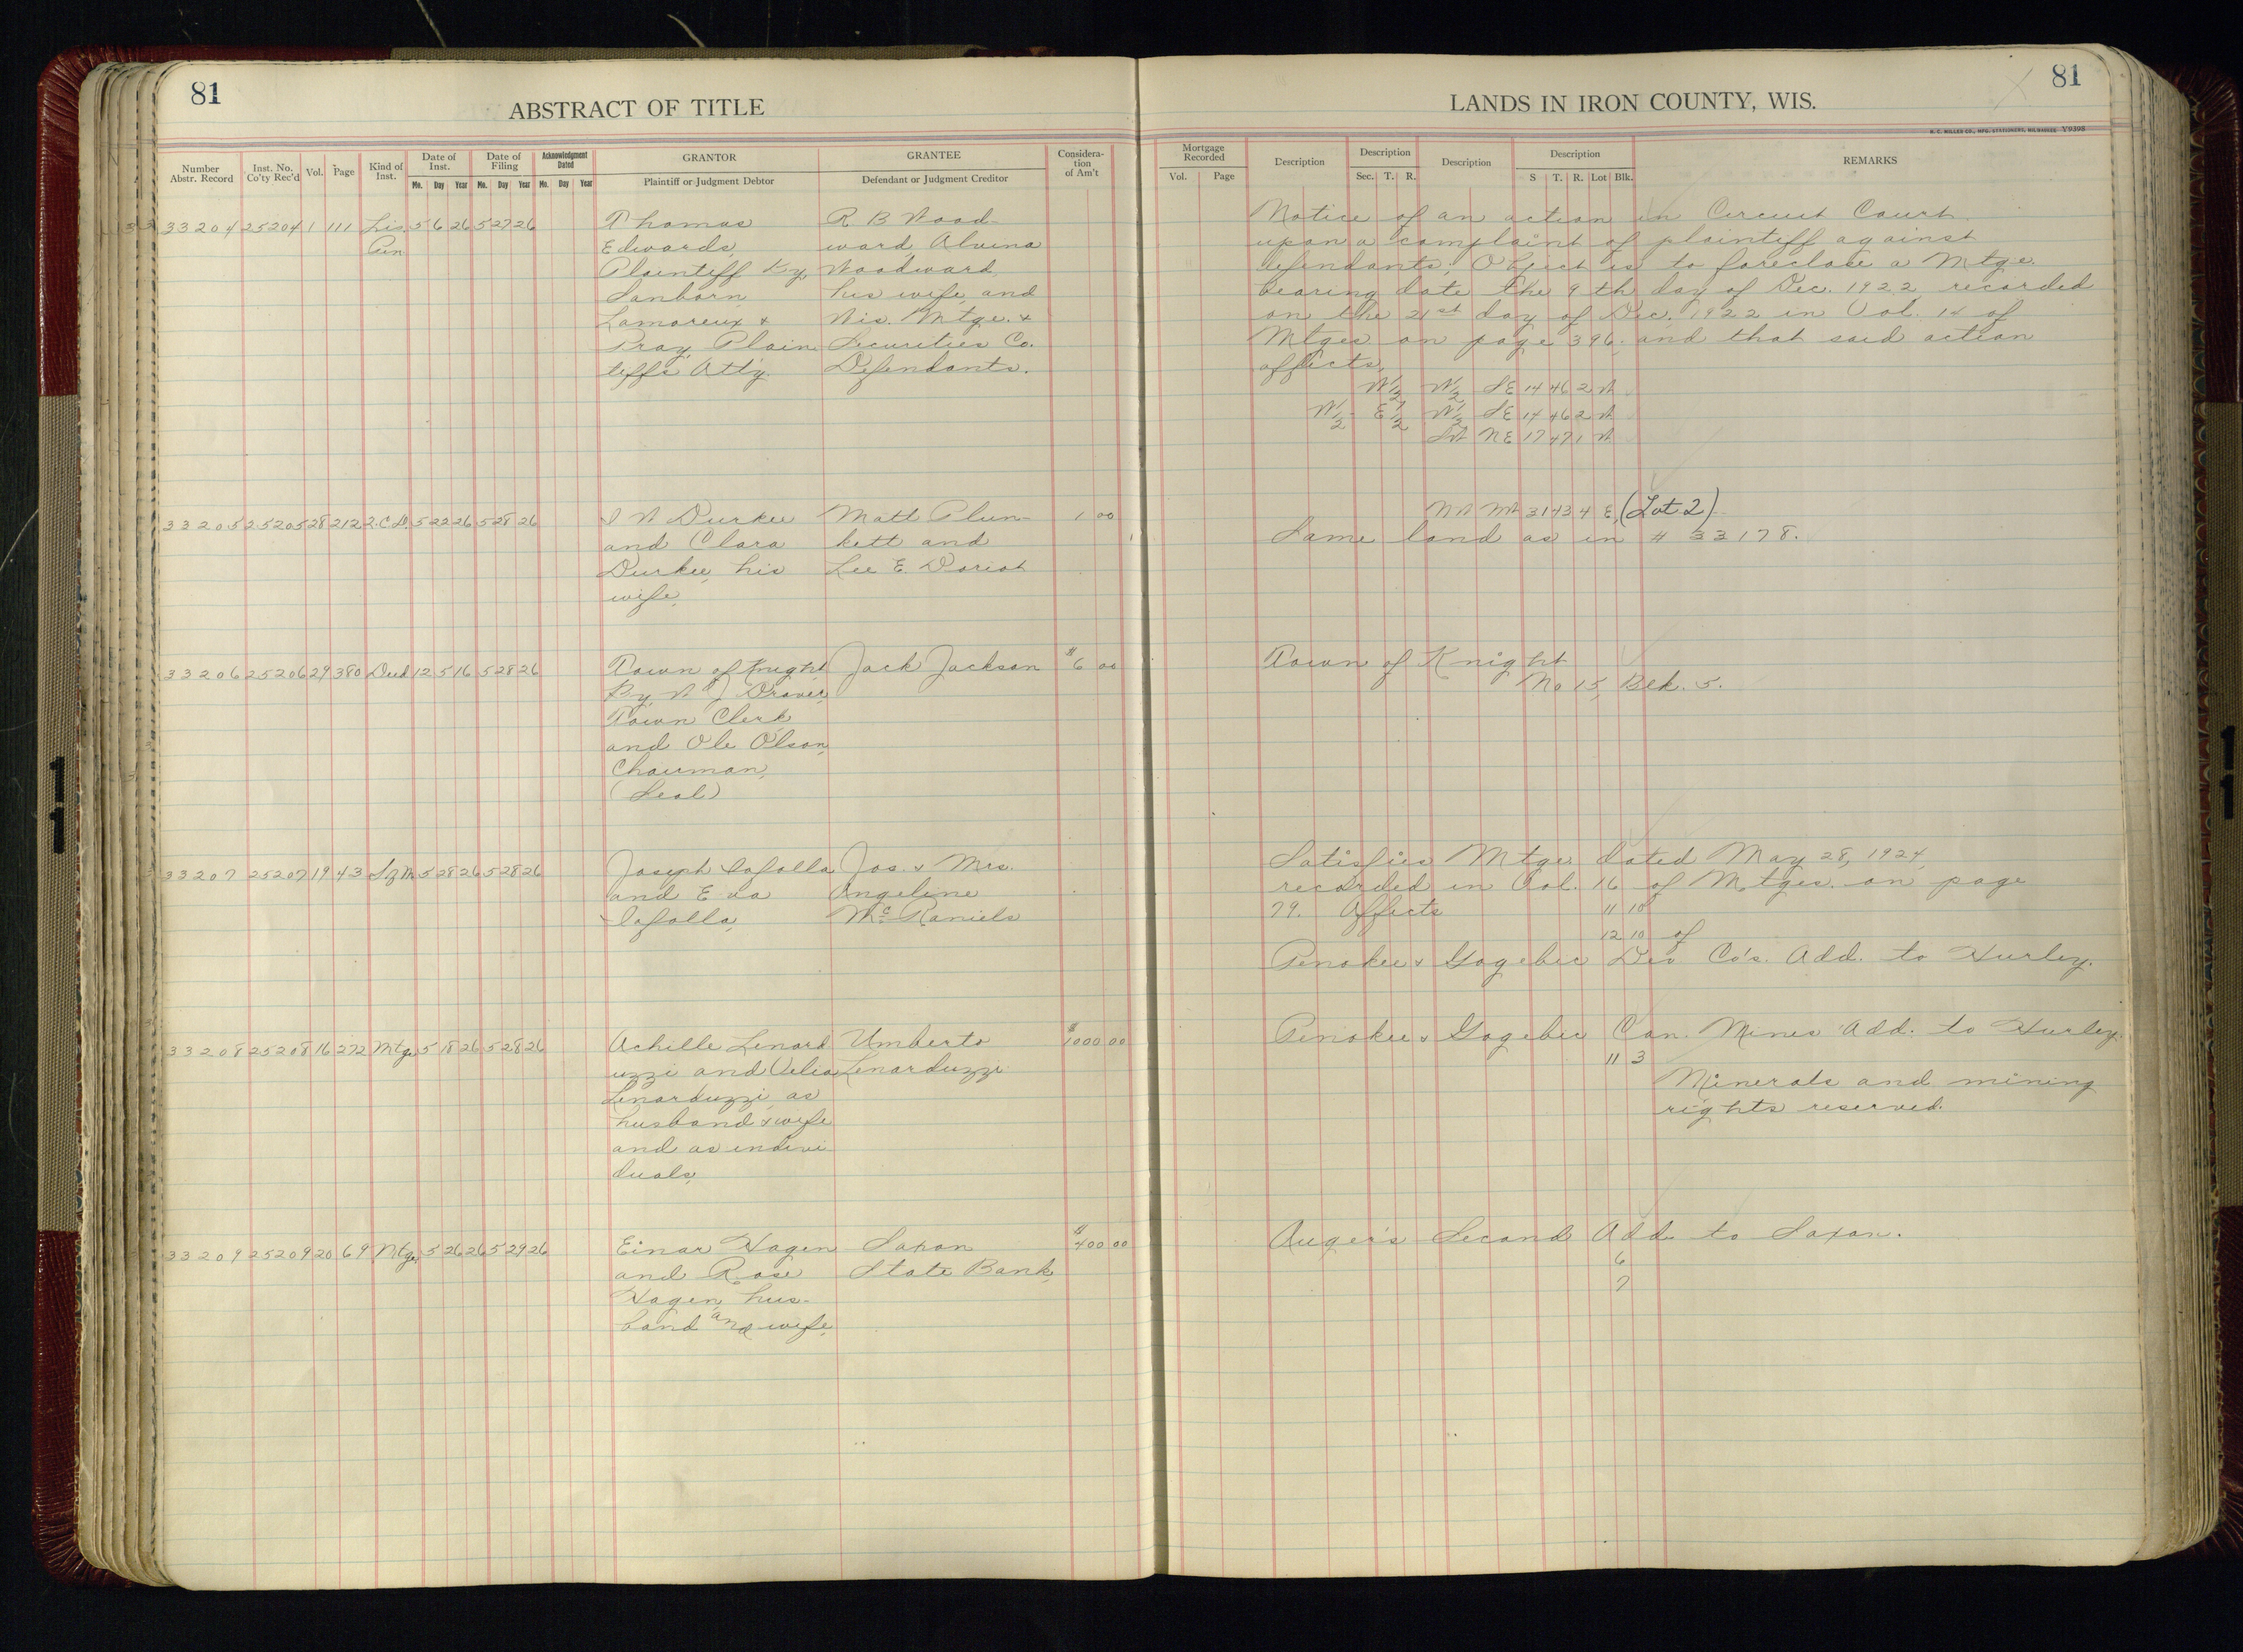 81
ABSTRACT OF TITLE
Number Abstr. Record
Inst. No. Co'ty Rec'd
Vol.
Page
Kind of Inst.
Date of Inst.
Mo. Day Year
Date of Filing
Mo. Day Year
Acknowledgment Dated
Mo. Day Year
GRANTOR
Plaintiff or Judgment Debtor
GRANTEE
Defendant or Judgment Creditor
Considera-tion of Am't
33204 25204 1 111 Lis 5 6 26 5 27 26 Thomas R B Wood-
Pen Edwards, ward, Alvina
Plaintiff by Woodward,
Sanborn, his wife, and
Lamoreux & Wis. Mtge. &
Pray, Plain Securities Co.
tiffs Att'y. Defendants.
33205 25205 28 212 2.C.D. 5 22 26 5 28 26 Durkee Matt Plun- 1 00
and Clara kett and
Durkee, his Lee E. Doriot
wife,
33206 25206 29 380 Deed 12 5 16 5 28 26 Town of Knight Jack Jackson $6 00
By W J Drover,
Town Clerk
and Ole Olson,
Chairman,
(Seal)
33207 25207 19 43 5 28 26 5 28 26 Joseph Lafolla Jos. & Mrs.
and Eva Angeline
Lafolla, Mc Raniels
33208 25208 16 272 Mtge 5 18 26 5 28 26 Achille Lenard Umberto $1000 00
uzzi and Lenarduzzi
Lenarduzzi, as
husband & wife
and as indivi-
duals,
33209 25209 20 69 Mtge. 5 26 26 5 29 26 Einar Hagen Saxon $400 00
and Rose State Bank,
Hagen, hus-
band and wife,
81
LANDS IN IRON COUNTY, WIS.
H. C. MILLER CO., MFG. STATIONERS, MILWAUKEE Y9398
Mortgage Recorded
Vol. Page
Description
Description
Sec. T. R.
Description
Description
S T. R. Lot Blk.
REMARKS
Notice of an action in Circuit Court
upon a complaint of plaintiff against
defendants; Object is to foreclose a Mtge.
bearing date the 9th day of Dec. 1922, recorded
on the 21st day of Dec. 1922 in Vol. 14 of
Mtges on page 396, and that said action
affects,
W½ W½ SE 14 46 2 W
W½ E½ W½ SE 14 46 2 W
SW NE 17 47 1 W
NW NW 31 43 4 E, (Lot 2)
Same land as in # 33178.
Town of Knight
No 15, Blk. 5.
Satisfies Mtge dated May 28, 1924,
recorded in Vol. 16 of Mtges. on page
79. Affects 11 10
12 10 of
Penokee & Gogebic Dev Co's. Add. to Hurley.
Penokee & Gogebic Con. Mines Add. to Hurley.
11 3
Minerals and mining
rights reserved.
Auger's Second Add. to Saxon.
6
7